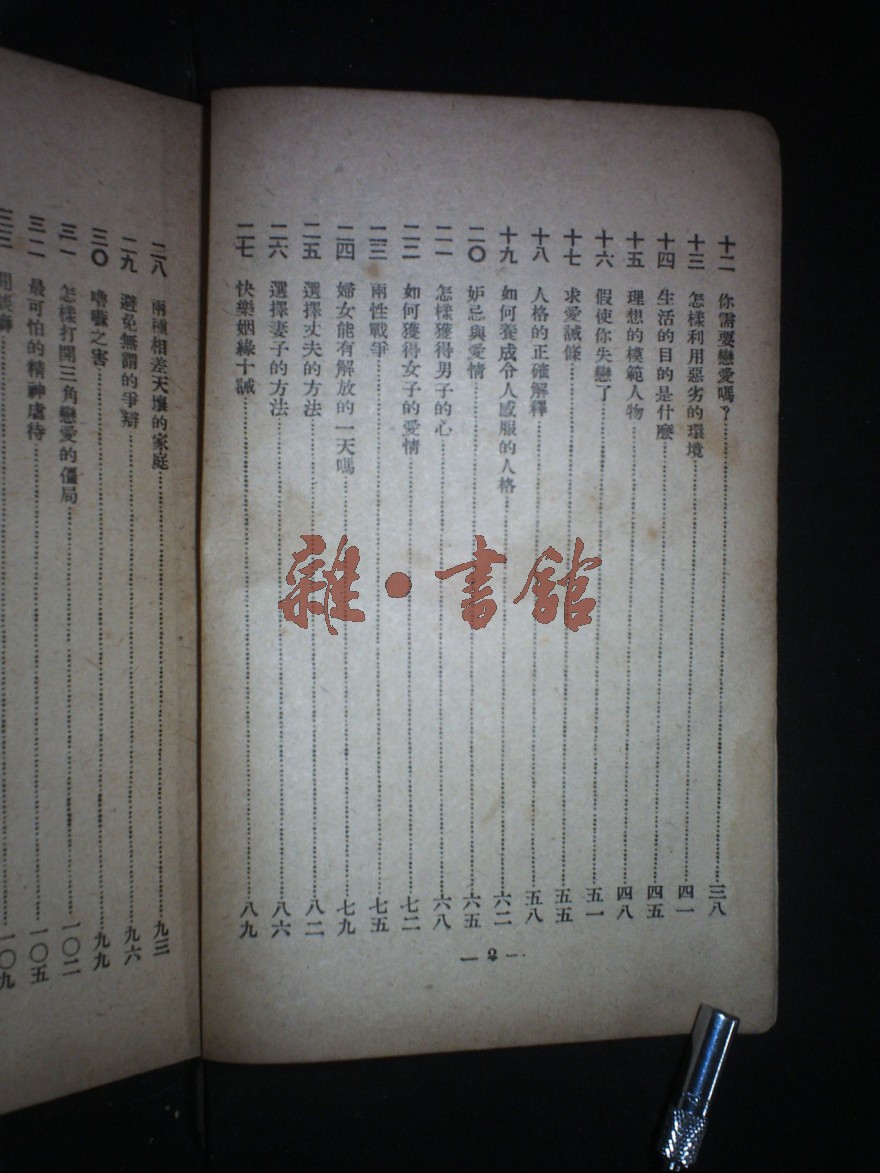 十二 你需要戀愛嗎？ 三八
十三 怎樣利用惡劣的環境 四一
十四 生活的目的是什麼 四五
十五 理想的模範人物 四八
十六 假使你失戀了 五一
十七 求愛誡條 五五
十八 人格的正確解釋 五八
十九 如何養成令人感服的人格 六二
二〇 妒忌與愛情 六五
二一 怎樣獲得男子的心 六八
二二 如何獲得女子的愛情 七二
二三 兩性戰爭 七五
二四 婦女能有解放的一天嗎 七九
二五 選擇丈夫的方法 八二
二六 選擇妻子的方法 八六
二七 快樂姻緣十誡 八九
— 2 —
二八 兩種相差天壤的家庭 九三
二九 避免無謂的爭辯 九六
三〇 嚕囌之害 九九
三一 怎樣打開三角戀愛的僵局 一〇二
三二 最可怕的精神虐待 一〇五
三三 一〇九
雜·書館